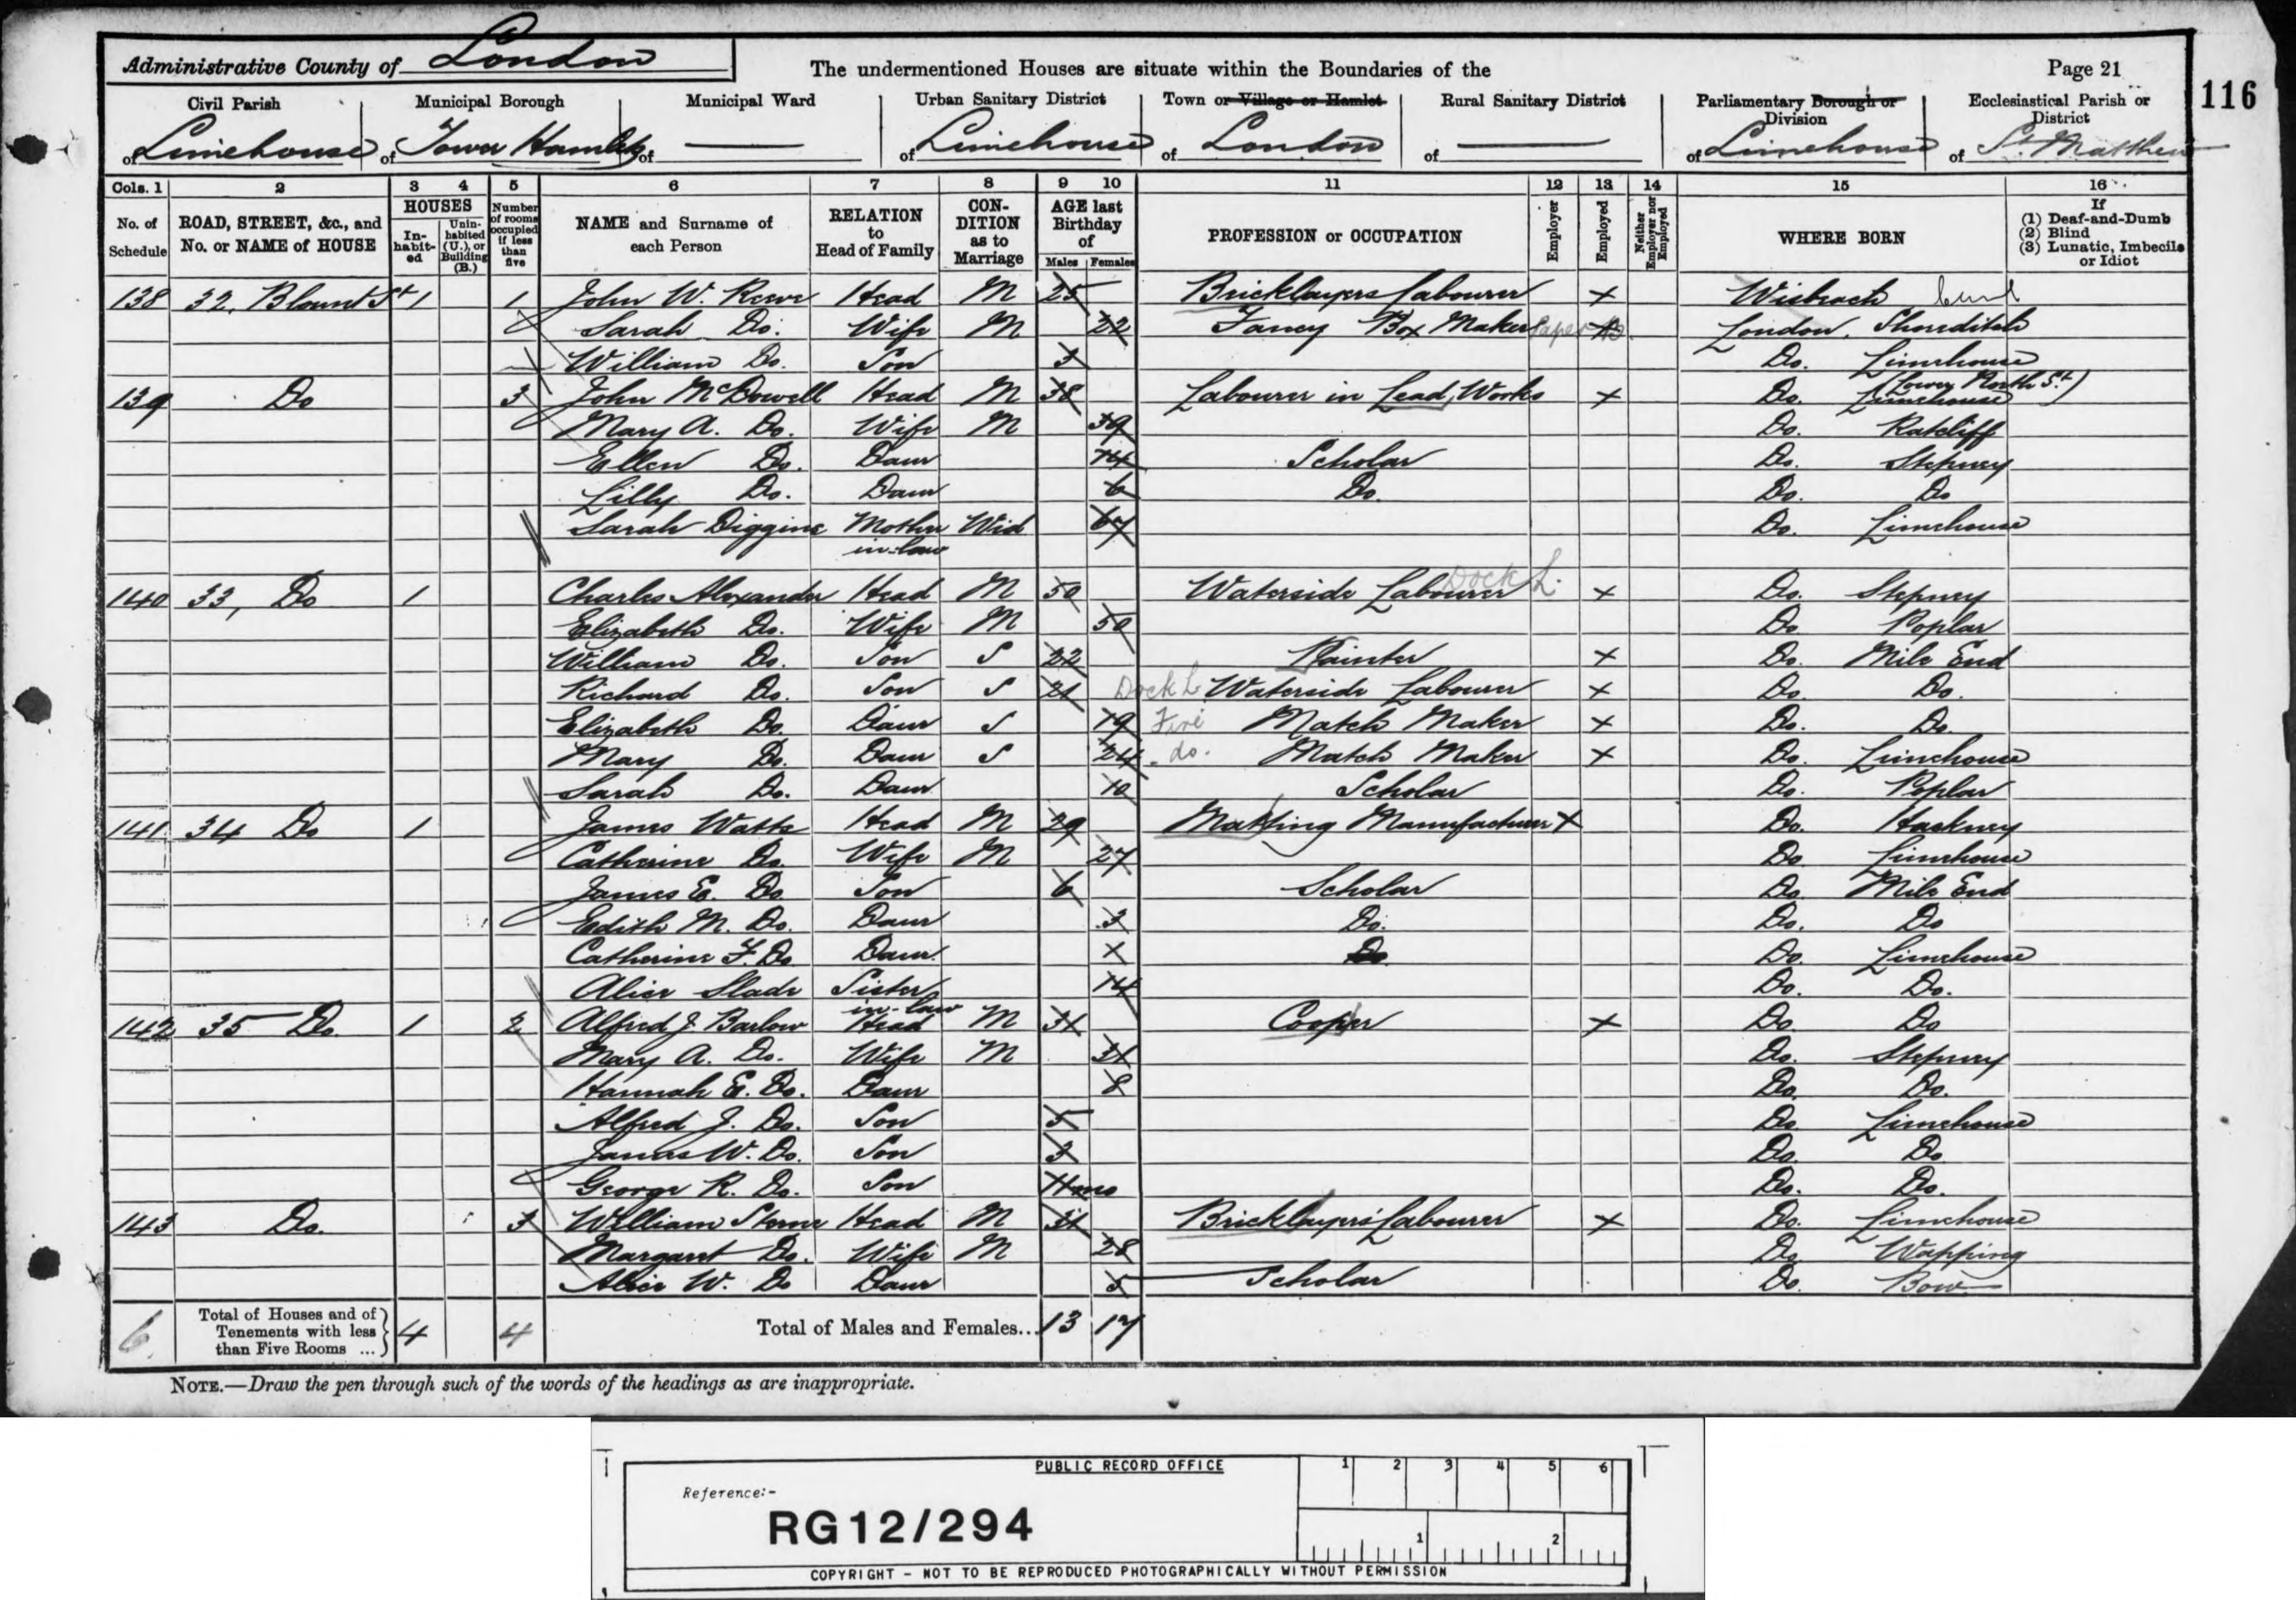 Administrative County of London
The undermentioned Houses are situate within the Boundaries of the
Page 21
116
Civil Parish of Limehouse
Municipal Borough of Tower Hamlets
Municipal Ward of —
Urban Sanitary District of Limehouse
Town or Village or Hamlet of London
Rural Sanitary District of —
Parliamentary Borough or Division of Limehouse
Ecclesiastical Parish or District of St. Matthew
Cols. 1 2 3 4 5 6 7 8 9 10 11 12 13 14 15 16
No. of Schedule
ROAD, STREET, &c., and No. or NAME of HOUSE
HOUSES
In-habit-ed
Unin-habited (U.), or Building (B.)
Number of rooms occupied if less than five
NAME and Surname of each Person
RELATION to Head of Family
CON-DITION as to Marriage
AGE last Birthday of
Males Females
PROFESSION or OCCUPATION
Employer
Employed
Neither Employer nor Employed
WHERE BORN
If
(1) Deaf-and-Dumb
(2) Blind
(3) Lunatic, Imbecile or Idiot
138 32, Blount St 1 1 John W. Reeve Head M 25 Bricklayers Labourer X Wisbeach
Sarah Do. Wife M 22 Fancy Box Maker Paper London, Shoreditch
William Do. Son 3 Do. Limehouse
139 Do 3 John McDowell Head M 38 Labourer in Lead Works X Do. Limehouse (Lower North St.)
Mary A. Do. Wife M 39 Do. Ratcliff
Ellen Do. Daur 14 Scholar Do. Stepney
Lilly Do. Daur 6 Do. Do. Do
Sarah Diggins Mother in-law Wid 67 Do. Limehouse
140 33, Do 1 Charles Alexander Head M 50 Waterside Labourer Dock L. X Do. Stepney
Elizabeth Do. Wife M 50 Do Poplar
William Do. Son S 22 Painter X Do. Mile End
Richard Do. Son S 21 Dock L Waterside Labourer X Do. Do.
Elizabeth Do. Daur S 19 Match Maker X Do. Do.
Mary Do. Daur S 24 do. Match Maker X Do. Limehouse
Sarah Do. Daur 10 Scholar Do. Poplar
141 34 Do 1 James Watts Head M 29 Matting Manufacturer X Do. Hackney
Catherine Do. Wife M 27 Do Limehouse
James E. Do Son 6 Scholar Do Mile End
Edith M. Do. Daur 3 Do. Do. Do
Catherine F. Do Daur. Do Do. Limehouse
Alice Slade Sister in-law 14 Do. Do.
142 35 Do. 1 2 Alfred J. Barlow Head M 31 Cooper X Do Do
Mary A. Do. Wife M 31 Do. Stepney
Hannah E. Do. Daur 8 Do. Do.
Alfred J. Do. Son 5 Do. Limehouse
James W. Do. Son 3 Do. Do
George R. Do. Son 11 mo Do. Do.
143 Do. 3 William Sterne Head M 31 Bricklayers' Labourer X Do. Limehouse
Margaret Do. Wife M 28 Do. Wapping
Alice W. Do Daur 5 Scholar Do. Bow
6 Total of Houses and of Tenements with less than Five Rooms ... 4 4 Total of Males and Females... 13 17
NOTE.—Draw the pen through such of the words of the headings as are inappropriate.
PUBLIC RECORD OFFICE
1 2 3 4 5 6
Reference:-
RG12/294
1 2
COPYRIGHT - NOT TO BE REPRODUCED PHOTOGRAPHICALLY WITHOUT PERMISSION